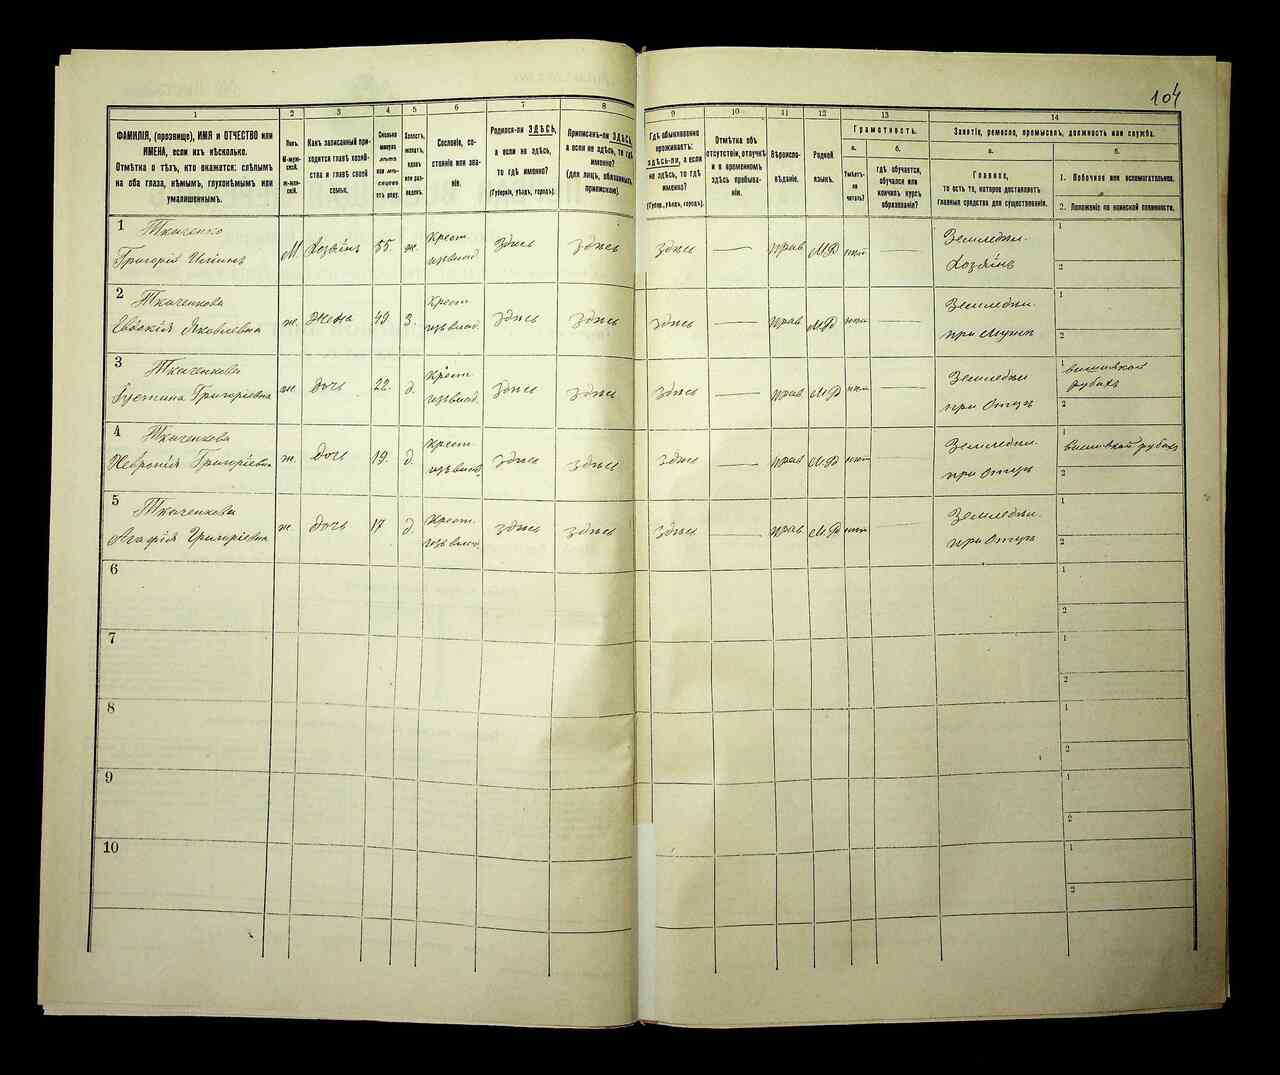 104
1
2
3
4
5
6
7
8
9
10
11
12
13
14
ФАМИЛІЯ, (прозвище), ИМЯ и ОТЧЕСТВО или
ИМЕНА, если ихъ нѣсколько.
Отмѣтка о тѣхъ, кто окажется: слѣпымъ
на оба глаза, нѣмымъ, глухонѣмымъ или
умалишеннымъ.
Полъ.
М-муж-
ской.
ж-жен-
скій.
Какъ записанный при-
ходится главѣ хозяй-
ства и главѣ своей
семьи.
Сколько
минуло
лѣтъ
или мѣ-
сяцевъ
отъ роду.
Холостъ,
женатъ,
вдовъ
или раз-
веденъ.
Сословіе, со-
стояніе или зва-
ніе.
Родился-ли ЗДѢСЬ,
а если не здѣсь,
то гдѣ именно?
(Губернія, уѣздъ, городъ).
Приписанъ-ли ЗДѢСЬ,
а если не здѣсь, то гдѣ
именно?
(для лицъ, обязанныхъ
припискою).
Гдѣ обыкновенно
проживаетъ:
здѣсь-ли, а если
не здѣсь, то гдѣ
именно?
(Губер., уѣздъ, городъ).
Отмѣтка объ
отсутствіи, отлучкѣ
и о временномъ
здѣсь пребыва-
ніи.
Вѣроиспо-
вѣданіе.
Родной
языкъ.
Грамотность.
а.
Умѣетъ-
ли
читать?
б.
гдѣ обучается,
обучался или
кончилъ курсъ
образованія?
Занятіе, ремесло, промыселъ, должность или служба.
а.
Главное,
то есть то, которое доставляетъ
главныя средства для существованія.
б.
1. Побочное или вспомогательное.
2. Положеніе по воинской повинности.
1 Ткаченко
Григорій Ильинъ М Хозяинъ 55. ж. Крест. здѣсь здѣсь здѣсь — прав МР нѣт — Земледѣл. Хозяинъ
1
2
2 Ткаченкова
Евдокія Яковлевна ж. Жена 49 З. Крест здѣсь здѣсь здѣсь — прав МР нѣт — Земледѣл. при Мужѣ
1
2
3 Ткаченкова
Устина Григоріевна ж. дочь 22. д. Крест здѣсь здѣсь здѣсь — прав МР нѣт — Земледѣл при Отцѣ
1 вишивкой рубахъ
2
4 Ткаченкова
Григоріевна ж. дочь 19. д. Крест. здѣсь здѣсь здѣсь — прав МР нѣт — Земледѣл. при Отцѣ
1 вишивкой рубахъ
2
5 Ткаченкова
Агафія Григоріевна ж. дочь 17 д. Крест. здѣсь здѣсь здѣсь — прав МР нѣт — Земледѣл. при Отцѣ
1
2
6
1
2
7
1
2
8
1
2
9
1
2
10
1
2